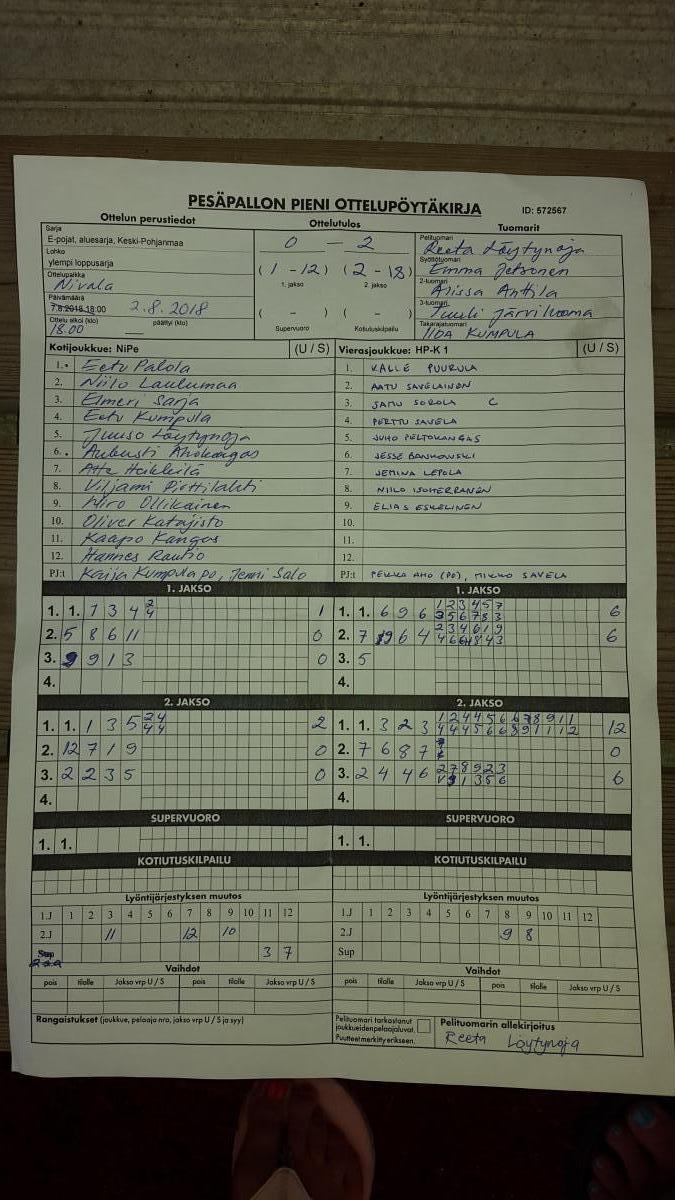 PESÄPALLON PIENI OTTELUPÖYTÄKIRJA ID: 572567
Ottelun perustiedot Ottelutulos Tuomarit
Sarja
E-pojat, aluesarja, Keski-Pohjanmaa
Lohko
ylempi loppusarja
Ottelupaikka
Nivala
Päivämäärä
7.8.2018 18:00 2.8.2018
Ottelu alkoi (klo) päättyi (klo)
18.00
0 - 2
(1 - 12) (2 - 18)
1. jakso 2. jakso
( - ) ( - )
Supervuoro Kotiutuskilpailu
Pelituomari
Reeta Löytynoja
Syöttötuomari
Emma Jetsonen
2-tuomari
Alissa Anttila
3-tuomari
Tuuli Järviluoma
Takarajatuomari
IIDA KUMPULA
Kotijoukkue: NiPe (U / S)
1. Eetu Palola
2. Niilo Laulumaa
3. Elmeri Sarja
4. Eetu Kumpula
5. Juuso Löytynoja
6. Aukusti Ahokangas
7. Atte Heikkilä
8. Viljami Pirttilahti
9. Niro Ollikainen
10. Oliver Katajisto
11. Kaapo Kangas
12. Hannes Rautio
PJ:t Kaija Kumpula po, Jenni Salo
Vierasjoukkue: HP-K 1 (U / S)
1. KALLE PUURULA
2. AATU SAVELAINEN
3. SAMU SOROLA C
4. PERTTU SAVELA
5. JUHO PELTOKANGAS
6. JESSE BANKOWSKI
7. JEMINA LEPOLA
8. NIILO ISOHERRANEN
9. ELIAS ESKELINEN
10.
11.
12.
PJ:t PEKKA AHO (PO), MIKKO SAVELA
1. JAKSO
1. 1. 1 3 4 2 1
4
2. 5 8 6 11 0
3. 9 9 1 3 0
4.
1. JAKSO
1. 1. 6 9 6 1 2 3 4 5 7 6
3 5 6 7 8 3
2. 7 9 6 4 2 3 4 6 1 9 6
3. 5
4.
2. JAKSO
1. 1. 1 3 5 2 4 2
4 4
2. 12 7 1 9 0
3. 2 2 3 5 0
4.
2. JAKSO
1. 1. 3 2 3 12
2. 7 6 8 7 0
3. 2 4 4 6 2 7 8 9 2 3 6
4.
SUPERVUORO SUPERVUORO
1. 1. 1. 1.
KOTIUTUSKILPAILU KOTIUTUSKILPAILU
Lyöntijärjestyksen muutos
1.J 1 2 3 4 5 6 7 8 9 10 11 12
2.J 11 12 10
Sup 3 7
Lyöntijärjestyksen muutos
1.J 1 2 3 4 5 6 7 8 9 10 11 12
2.J 9 8
Sup
Vaihdot Vaihdot
pois tilalle Jakso vrp U / S pois tilalle Jakso vrp U / S
pois tilalle Jakso vrp U / S pois tilalle Jakso vrp U / S
Rangaistukset (joukkue, pelaaja nro, jakso vrp U / S ja syy)
Pelituomari tarkastanut
joukkueiden pelaajaluvat.
Puutteet merkitty erikseen.
Pelituomarin allekirjoitus
Reeta Löytynoja